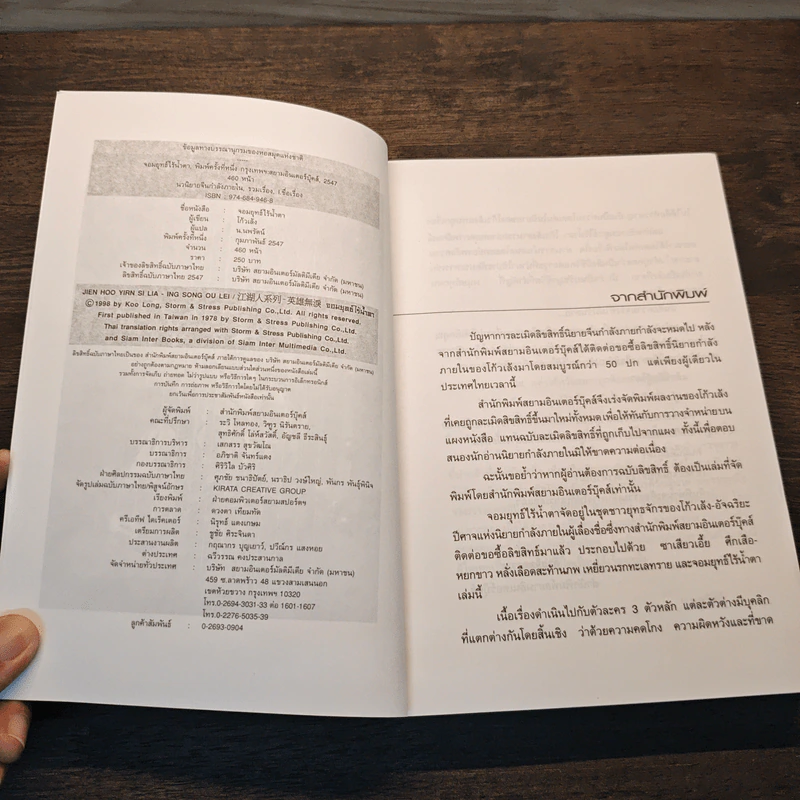 ข้อมูลทางบรรณานุกรมของหอสมุดแห่งชาติ
จอมยุทธ์ไร้น้ำตา, พิมพ์ครั้งที่หนึ่ง กรุงเทพฯ:สยามอินเตอร์บุ๊คส์, 2547
460 หน้า
นวนิยายจีนกำลังภายใน, รวมเรื่อง, I.ชื่อเรื่อง
ISBN : 974-684-946-8
ชื่อหนังสือ : จอมยุทธ์ไร้น้ำตา
ผู้เขียน : โก้วเล้ง
ผู้แปล : น.นพรัตน์
พิมพ์ครั้งที่หนึ่ง : กุมภาพันธ์ 2547
จำนวน : 460 หน้า
ราคา : 250 บาท
เจ้าของลิขสิทธิ์ฉบับภาษาไทย : บริษัท สยามอินเตอร์มัลติมีเดีย จำกัด (มหาชน)
ลิขสิทธิ์ฉบับภาษาไทย 2547 : บริษัท สยามอินเตอร์มัลติมีเดีย จำกัด (มหาชน)
JIEN HOO YIRN SI LIA - ING SONG OU LEI / 江湖人系列 - 英雄無淚 จอมยุทธ์ไร้น้ำตา
©1998 by Koo Long, Storm & Stress Publishing Co.,Ltd. All rights reserved.
First published in Taiwan in 1978 by Storm & Stress Publishing Co.,Ltd.
Thai translation rights arranged with Storm & Stress Publishing Co.,Ltd.
and Siam Inter Books, a division of Siam Inter Multimedia Co.,Ltd.
ลิขสิทธิ์ฉบับภาษาไทยเป็นของ สำนักพิมพ์สยามอินเตอร์บุ๊คส์ ภายใต้การดูแลของ บริษัท สยามอินเตอร์มัลติมีเดีย จำกัด (มหาชน)
อย่างถูกต้องตามกฎหมาย ห้ามลอกเลียนแบบส่วนใดส่วนหนึ่งของหนังสือเล่มนี้
รวมทั้งการจัดเก็บ ถ่ายทอด ไม่ว่ารูปแบบ หรือวิธีการใดๆ ในกระบวนการอิเล็กทรอนิกส์
การบันทึก การถ่ายภาพ หรือวิธีการใดโดยไม่ได้รับอนุญาต
ยกเว้นเพื่อการประชาสัมพันธ์หนังสือเท่านั้น
ผู้จัดพิมพ์ : สำนักพิมพ์สยามอินเตอร์บุ๊คส์
คณะที่ปรึกษา : ระวิ โหลทอง, วิฑูร นิรันตราย,
สุทธิศักดิ์ โล่ห์สวัสดิ์, อัญชลี ธีระสินธุ์
บรรณาธิการบริหาร : เสกสรร สุขวัฒโน
บรรณาธิการ : อภิชาติ จันทร์แดง
กองบรรณาธิการ : ศิริวิไล บัวศิริ
ฝ่ายศิลปกรรมฉบับภาษาไทย : ศุภชัย ชนาธิปัตย์, นราธิป วงษ์ใหญ่, พันกร พันธุ์พินิจ
จัดรูปเล่มฉบับภาษาไทย/พิสูจน์อักษร : KIRATA CREATIVE GROUP
เรียงพิมพ์ : ฝ่ายคอมพิวเตอร์สยามสปอร์ตฯ
การตลาด : ดวงตา เทียมทัด
ครีเอทีฟ ไดเร็คเตอร์ : นิรุทธ์ แดงเกษม
เตรียมการผลิต : ชูชัย ศิระจินดา
ประสานงานผลิต : กฤณากร บุญเยาว์, ปวีณ์กร แสงหอย
ต่างประเทศ : ฉวีวรรณ คงประสานกาล
จัดจำหน่ายทั่วประเทศ : บริษัท สยามอินเตอร์มัลติมีเดีย จำกัด (มหาชน)
459 ซ.ลาดพร้าว 48 แขวงสามเสนนอก
เขตห้วยขวาง กรุงเทพฯ 10320
โทร.0-2694-3031-33 ต่อ 1601-1607
โทร.0-2276-5035-39
ลูกค้าสัมพันธ์ : 0-2693-0904
จากสำนักพิมพ์
ปัญหาการละเมิดลิขสิทธิ์นิยายจีนกำลังภายกำลังจะหมดไป หลัง
จากสำนักพิมพ์สยามอินเตอร์บุ๊คส์ได้ติดต่อขอซื้อลิขสิทธิ์นิยายกำลัง
ภายในของโก้วเล้งมาโดยสมบูรณ์กว่า 50 ปก แต่เพียงผู้เดียวใน
ประเทศไทยเวลานี้
สำนักพิมพ์สยามอินเตอร์บุ๊คส์จึงเร่งจัดพิมพ์ผลงานของโก้วเล้ง
ที่เคยถูกละเมิดสิขสิทธิ์ขึ้นมาใหม่ทั้งหมดเพื่อให้ทันกับการวางจำหน่ายบน
แผงหนังสือ แทนฉบับละเมิดลิขสิทธิ์ที่ถูกเก็บไปจากแผง ทั้งนี้เพื่อตอบ
สนองนักอ่านนิยายกำลังภายในมิให้ขาดความต่อเนื่อง
ฉะนั้นขอย้ำว่าหากผู้อ่านต้องการฉบับลิขสิทธิ์ ต้องเป็นเล่มที่จัด
พิมพ์โดยสำนักพิมพ์สยามอินเตอร์บุ๊คส์เท่านั้น
จอมยุทธ์ไร้น้ำตาจัดอยู่ในชุดชาวยุทธจักรของโก้วเล้ง-อัจฉริยะ
ปีศาจแห่งนิยายกำลังภายในผู้เลื่องชื่อซึ่งทางสำนักพิมพ์สยามอินเตอร์บุ๊คส์
ติดต่อขอซื้อลิขสิทธิ์มาแล้ว ประกอบไปด้วย ซาเสียวเอี้ย ศึกเสือ-
หยกขาว หลั่งเลือดสะท้านภพ เหยี่ยวนรกทะเลทราย และจอมยุทธ์ไร้น้ำตา
เล่มนี้
เนื้อเรื่องดำเนินไปกับตัวละคร 3 ตัวหลัก แต่ละตัวต่างมีบุคลิก
ที่แตกต่างกันโดยสิ้นเชิง ว่าด้วยความคดโกง ความผิดหวังและที่ขาด